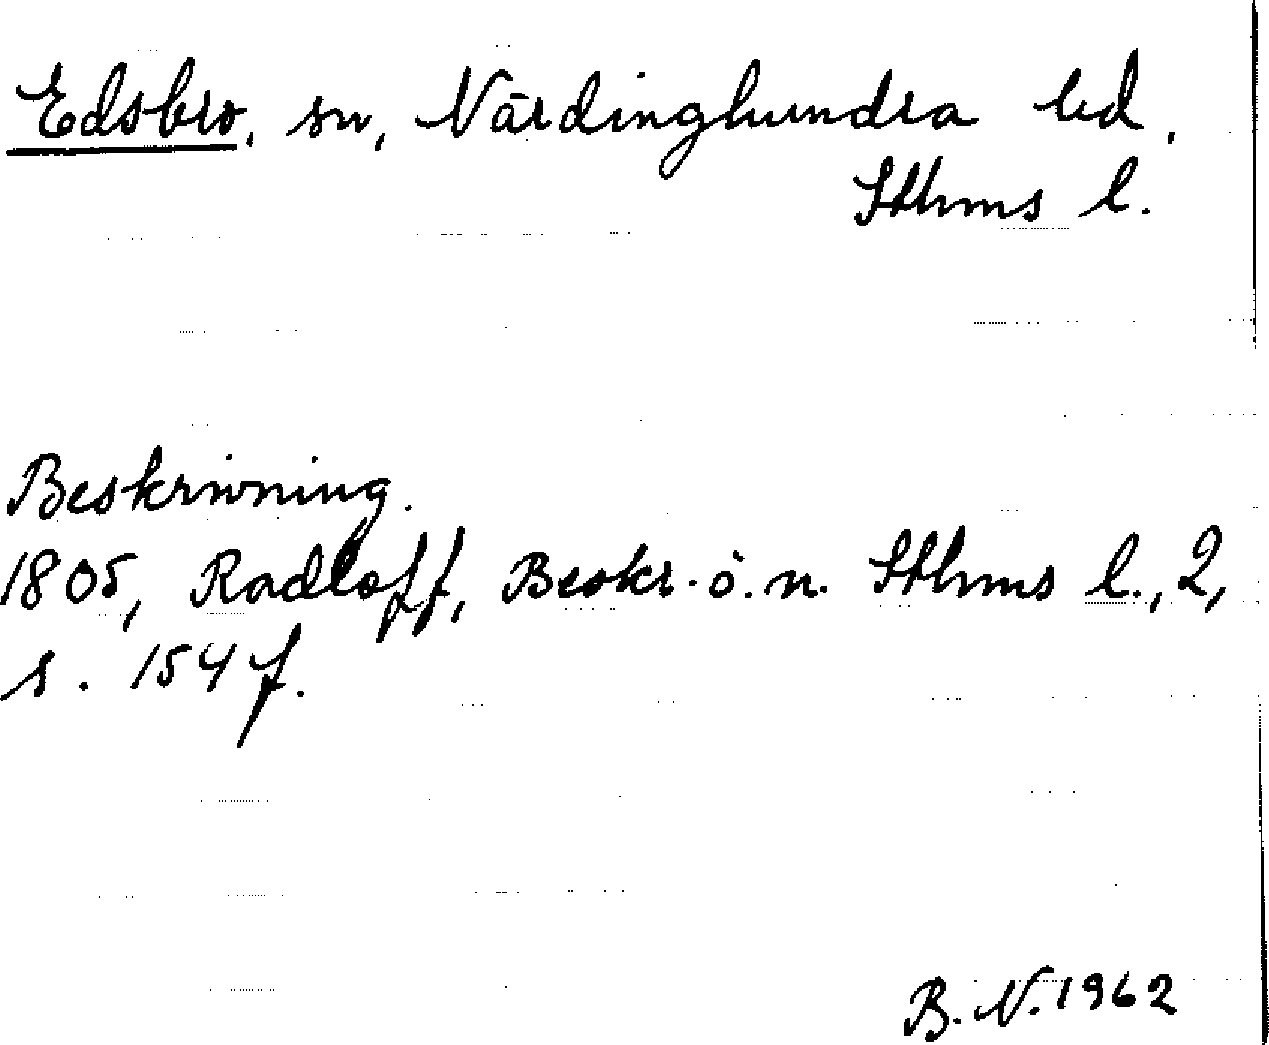 Edsbro, sn, Närdinghundra hd,
Sthms l.
Beskrivning.
1805, Radloff, Beskr. ö. n. Sthms l., 2,
s. 154 f.
B. N. 1962